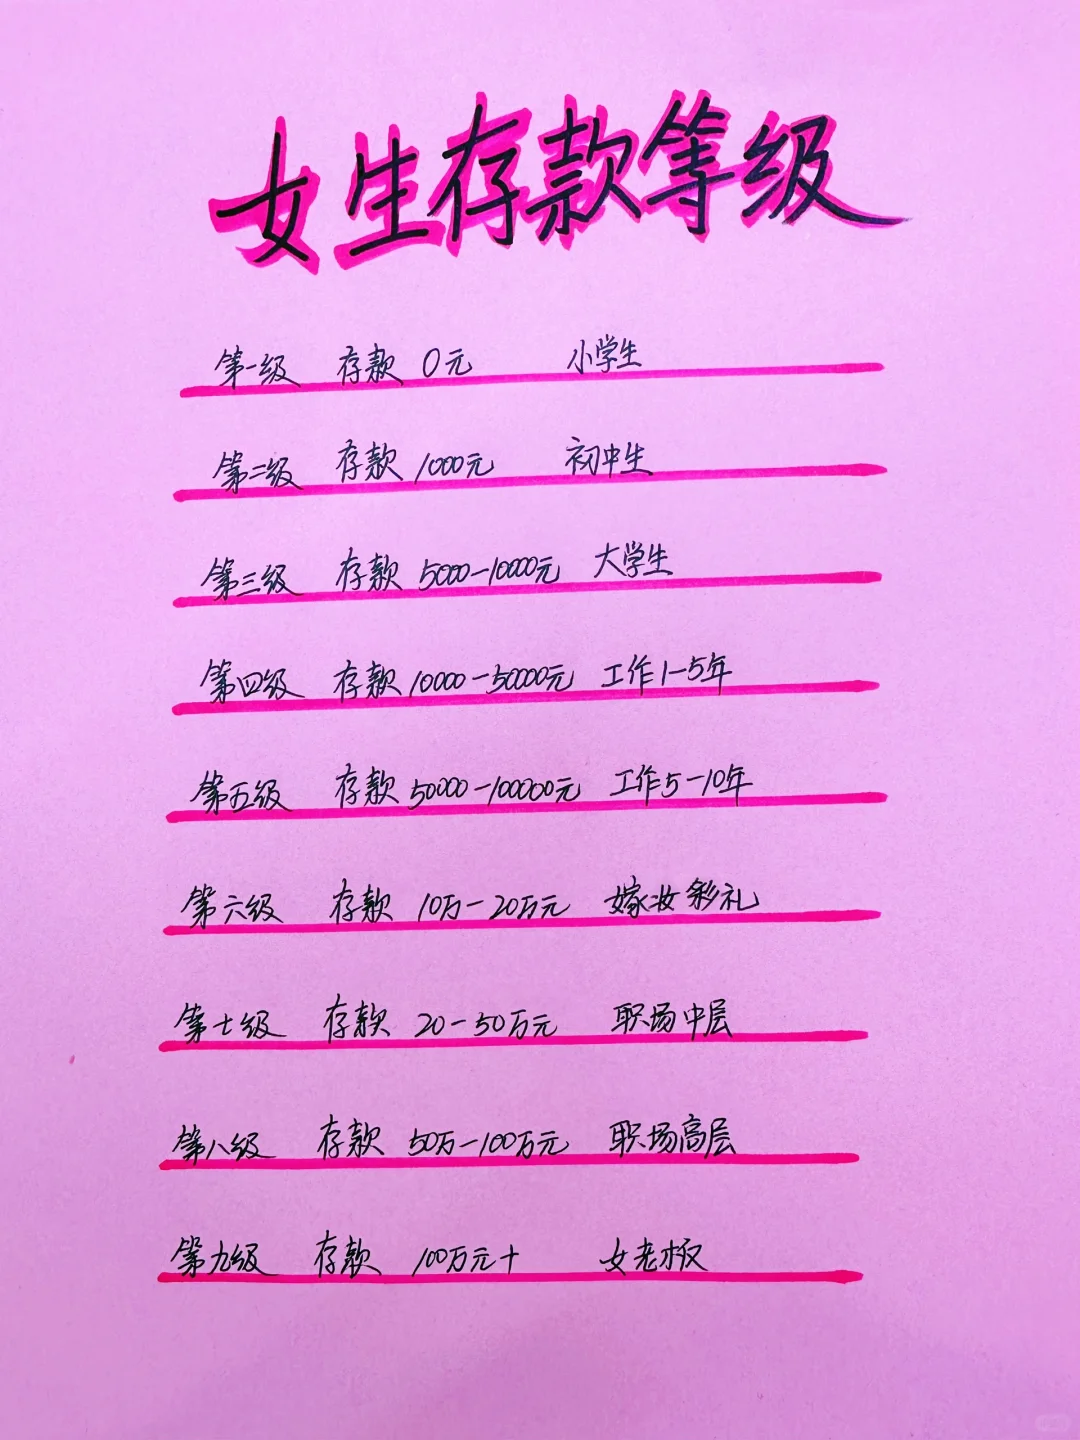 女生存款等级
第一级 存款 0元 小学生
第二级 存款 1000元 初中生
第三级 存款 5000-10000元 大学生
第四级 存款 10000-50000元 工作1-5年
第五级 存款 50000-100000元 工作5-10年
第六级 存款 10万-20万元 嫁妆彩礼
第七级 存款 20-50万元 职场中层
第八级 存款 50万-100万元 职场高层
第九级 存款 100万元+ 女老板